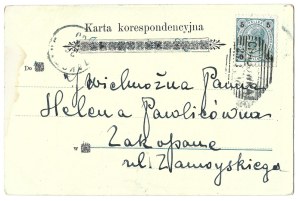 Karta korespondencyjna
Do
Wielmożna Panna
Helena Pawlicówna
w Zakopane
ul. Zamoyskiego